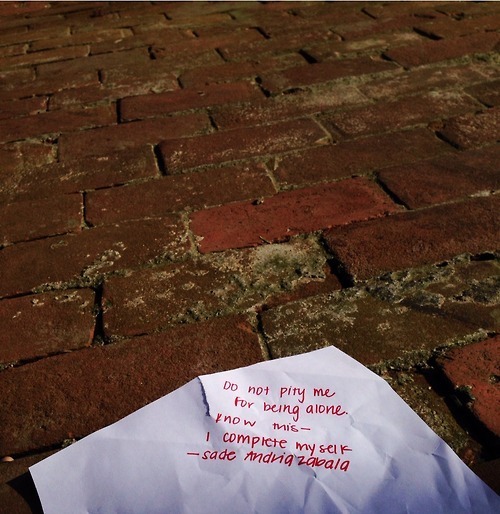 Do not pity me
for being alone.
know this—
I complete myself
—sade Andria Zabala